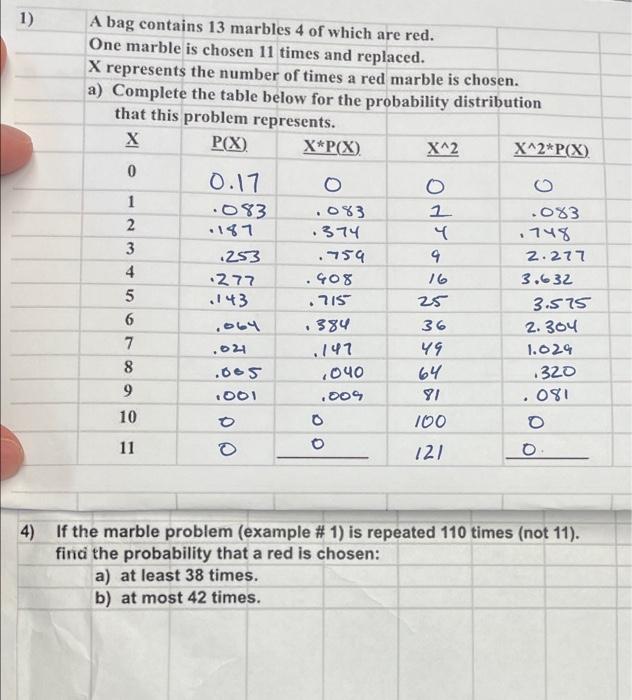 1) A bag contains 13 marbles 4 of which are red.
One marble is chosen 11 times and replaced.
X represents the number of times a red marble is chosen.
a) Complete the table below for the probability distribution
that this problem represents.
X P(X) X*P(X) X^2 X^2*P(X)
0 0.17 0 0 0
1 .083 .083 1 .083
2 .187 .374 4 .748
3 .253 .759 9 2.277
4 .277 .908 16 3.632
5 .143 .715 25 3.575
6 .064 .384 36 2.304
7 .021 .147 49 1.029
8 .005 .040 64 .320
9 .001 .009 81 .081
10 0 0 100 0
11 0 0 121 0.
4) If the marble problem (example # 1) is repeated 110 times (not 11).
find the probability that a red is chosen:
a) at least 38 times.
b) at most 42 times.